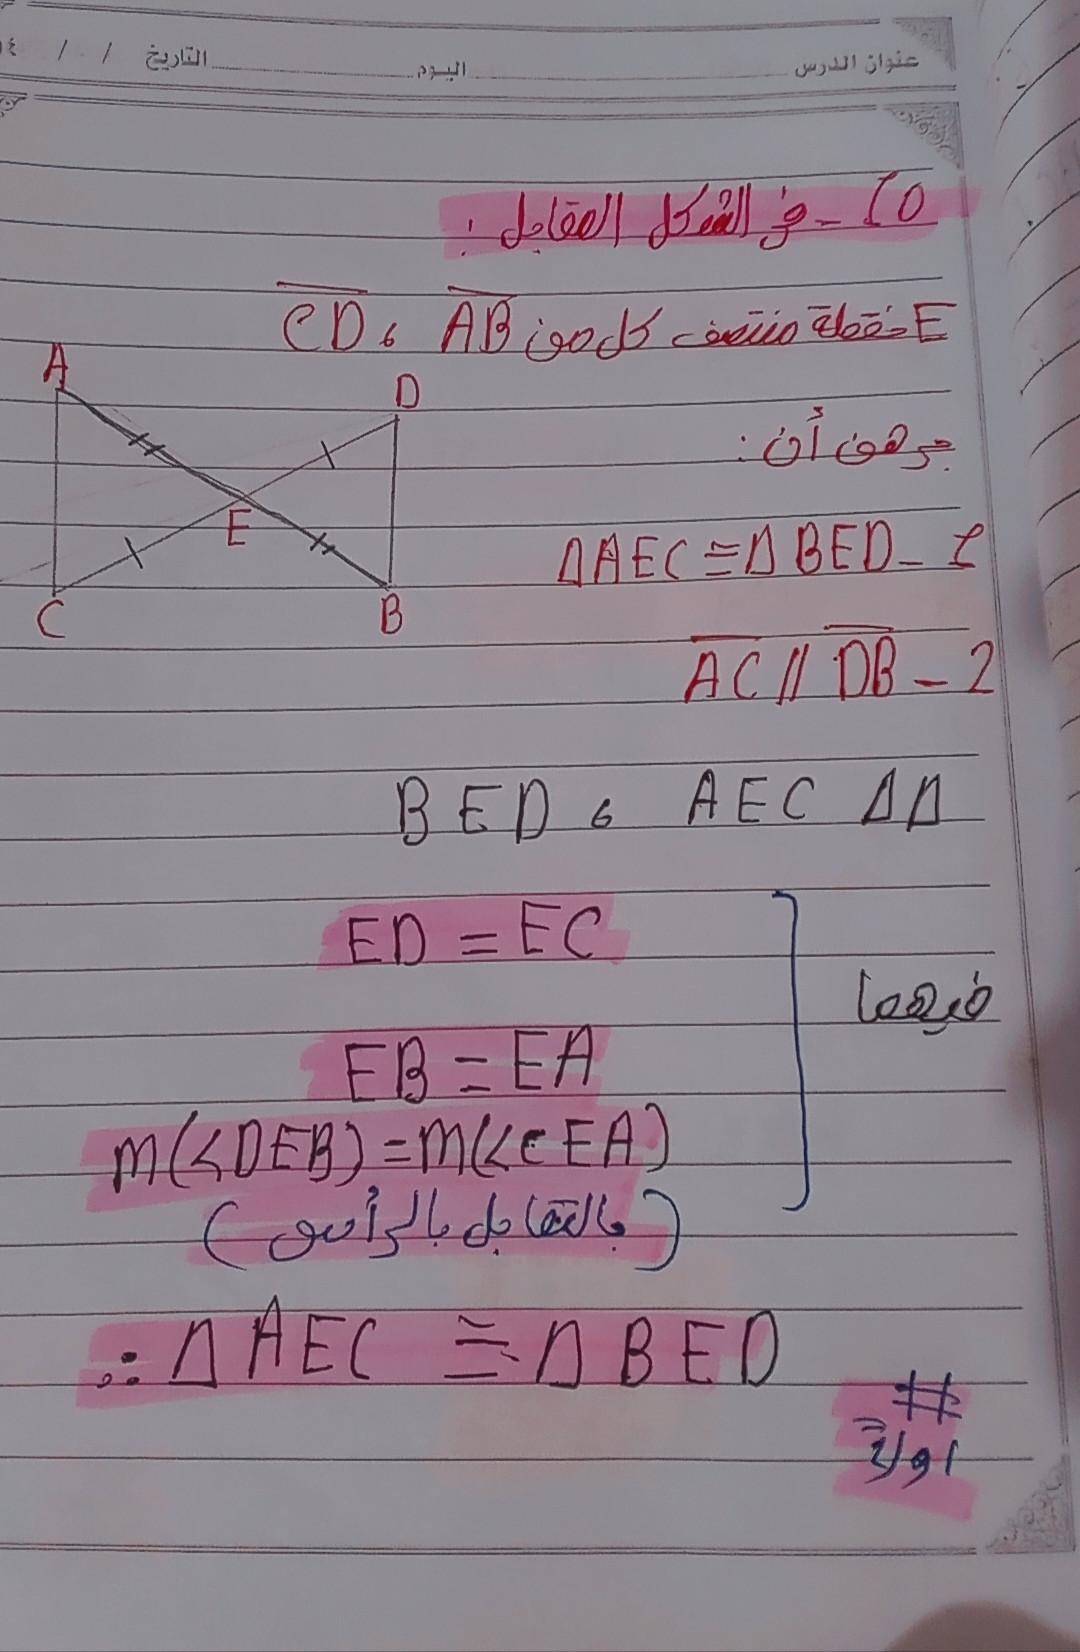 عنوان الدرس اليوم التاريخ / /
10 - في الشكل المقابل :
E نقطة منتصف كل من AB ، CD
برهن أن :
1 - ΔAEC ≅ Δ BED
2 - AC // DB
A
D
E
C
B
Δ Δ AEC ، BED
فيهما
ED = EC
EB = EA
m(<DEB) = m(<CEA)
(بالتقابل بالرأس)
∴ Δ AEC ≅ Δ BED
# اولاً